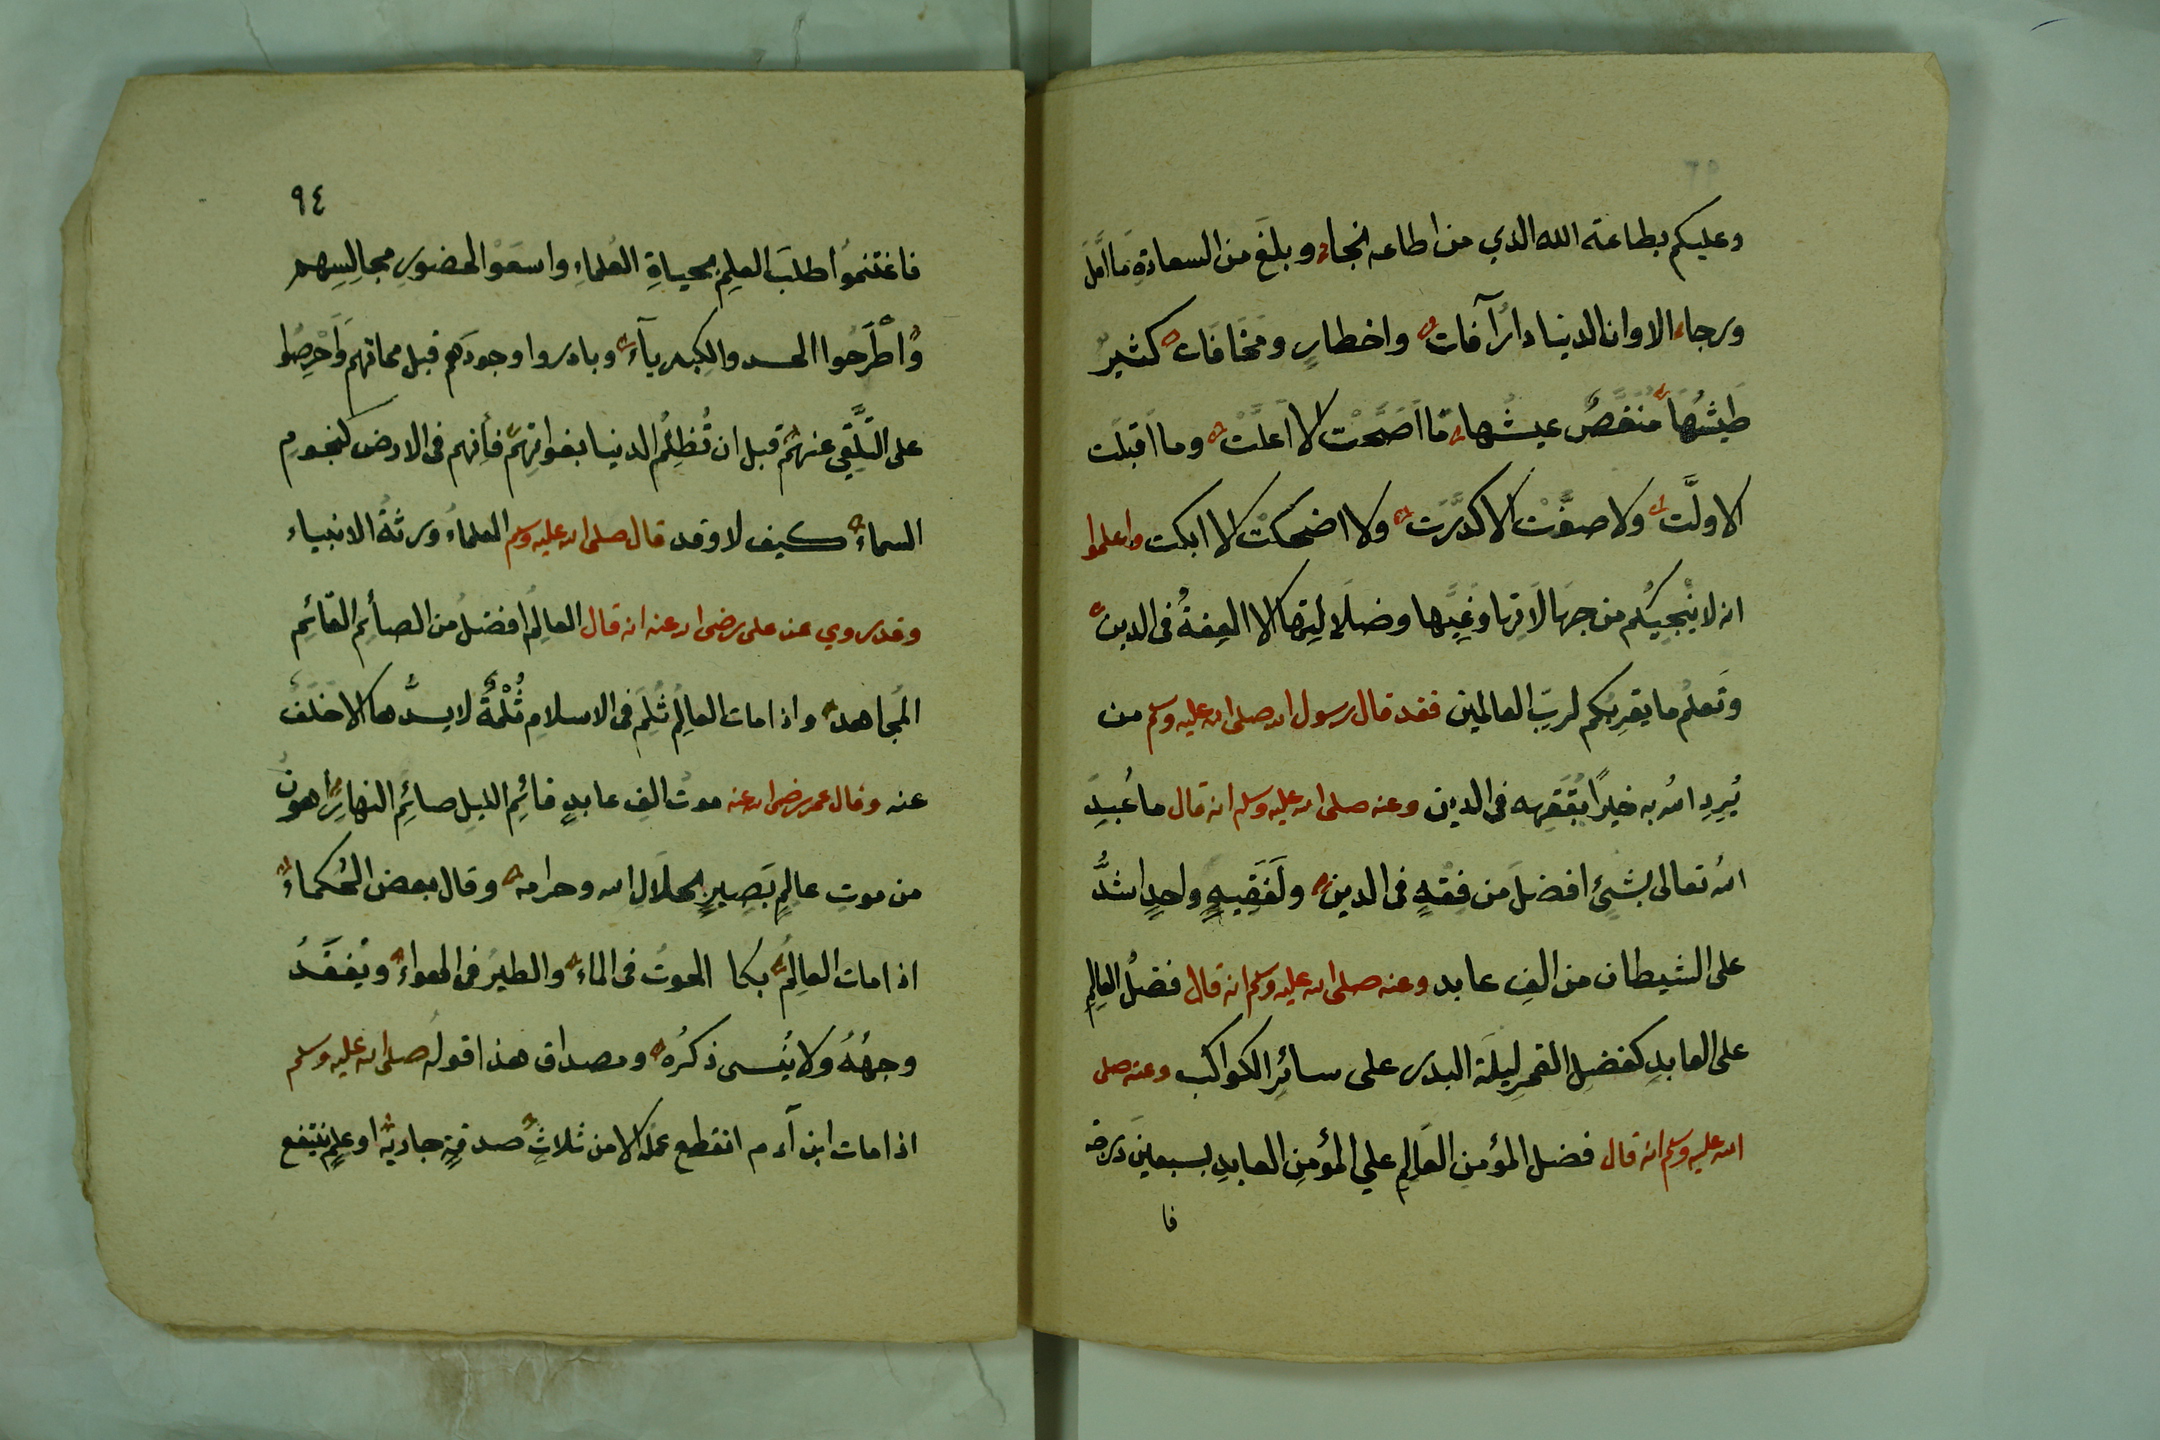 وعليكم بطاعة الله الذي من اطاعه نجاء وبلغَ من السعادةِ مَا اَمَّلَ
ورجاء الا وان الدنيا دارُ آفات واخطارٍ ومَخَافَات كثيرٌ
طَيْشُهَا مُنَغَّصٌ عيشُها مَا اَصَحَّتْ الا اَعلَّتْ وما اَقبلَت
الا ولَّت ولا صفَّتْ الا كدَّرَت ولا اضحكتْ الا ابكت واعلموا
انه لا يُنْجِيكُم من جهَالَاتِها وغَيِّها وضلَالِتِها الا الفِقهُ فى الدين
وتَعلُم ما يقرِبُكم لربّ العالمين فقد قال رسول الله صلى الله عليه وسلم من
يُرِدِ اللهُ به خيرًا يُفَقِهه فى الدين وعنه صلى الله عليه وسلم انه قال ما عُبِدَ
اللهُ تعالى بشئٍ افضلَ من فِقْهٍ فى الدين ولَفَقِيهٍ واحدٍ اشدُّ
على الشيطان من الفِ عابد وعنه صلى الله عليه وسلم انه قال فضلُ العالِمِ
على العابدِ كفضلِ القمرِ ليلَة البدر على سائرِ الكواكب وعنه صلى
الله عليه وسلم انه قال فضل المؤمن العَالِمِ علي المؤمِنِ العابدِ بسبعينَ درجة
فا
٩٤
فاغتنمُوا طلبَ العِلمِ بحياةِ العُلماءِ واسعَوْا لحضورِ مجالِسِهم
وَاطْرَحُوا الحسد والكِبرياآء وبادروا وجودَهم قبل مماتهم وَاحْرِصُوا
على التَّلَقِّي عنهُم قبل ان تُظلِمُ الدنيا بفواتِهِم فَأِنهم فى الارض كنجومِ
السماء كيف لا وقد قال صلى الله عليه وسلم العلماءُ ورثةُ الانبياء
وقد روي عن على رضى الله عنه انه قال العالِمُ افضلُ من الصأئِم القَائِمِ
المُجاهد واذا مات العالِمُ ثُلِمَ فى الاسلامِ ثُلْمَةٌ لا يسدُّها الا خَلَفٌ
عنه وقال عمر رضى الله عنه موتُ الفِ عابدٍ قائِمِ الليلِ صائِمِ النهارِ اهونُ
من موتِ عالِمٍ بَصِيرٍ بحلَالِ الله وحرامه وقال بعض الحُكماءِ
اذا مات العالِمُ بكا الحوتُ فى الماء والطيرُ فى الهواء ويُفقَدُ
وجهُهُ ولا يُنسى ذكرُه ومصداق هذا قولُه صلى الله عليه وسلم
اذا مات ابن آدم انقطع عملُه الا من ثلاثٍ صدقةٍ جاريةٍ او علمٍ ينتفع